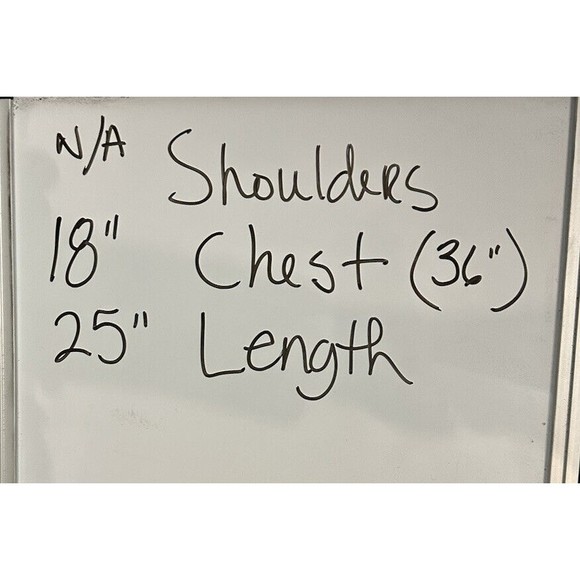 N/A Shoulders
18" Chest (36")
25" Length